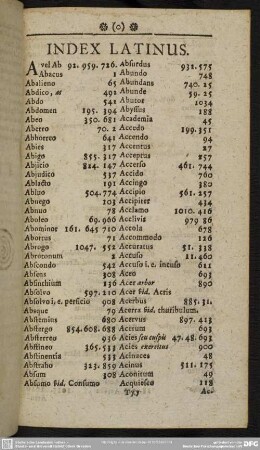 (o)
INDEX LATINUS.
A vel Ab 92. 959. 726.
Abacus 1
Abalieno 65
Abdico, as 491
Abdo 541
Abdomen 195. 394
Abeo 350. 681
Aberro 70. 2
Abhorreo 641
Abies 317
Abigo 855. 317
Abjicio 814. 147
Abjudico 537
Ablacto 191
Abluo 504. 774
Abnego 103
Abnuo 78
Aboleo 69. 966
Abominor 161. 645 710
Abortus 71
Abrogo 1047. 551
Abrotonum 2
Abscondo 541
Absens 308
Absinthium 136
Absolvo 597. 210
Absolvo i. e. perficio 908
Absque 79
Abstemius 680
Abstergo 854. 608. 688
Absterreo 936
Abstineo 365. 533
Abstinentia 533
Abstraho 323. 859
Absum 308
Absumo vid. Consumo
Absurdus 931. 575
Abundo 748
Abundans 740. 25
Abunde 59. 25
Abutor 1034
Abyssus 188
Academia 45
Accedo 199. 351
Accendo 601
Accentus 27
Acceptus 257
Accerso 461. 744
Accido 760
Accingo 380
Accipio 561. 257
Accipiter 434
Acclamo 1010. 416
Acclivis 979 86
Accola 678
Accommodo 126
Accuratus 51. 338
Accuso 11. 460
Accuso i. e. incuso 611
Aceo 693
Acer arbor 890
Acer vid. Acris
Acerbus 885. 31.
Acerra vid. thuribulum.
Acervus 897. 413
Acetum 693
Acies seu cuspis 47. 48. 693
Acies exercitus 900
Acinaces 48
Acinus 511. 175
Aconitum 49
Acquiesco 118